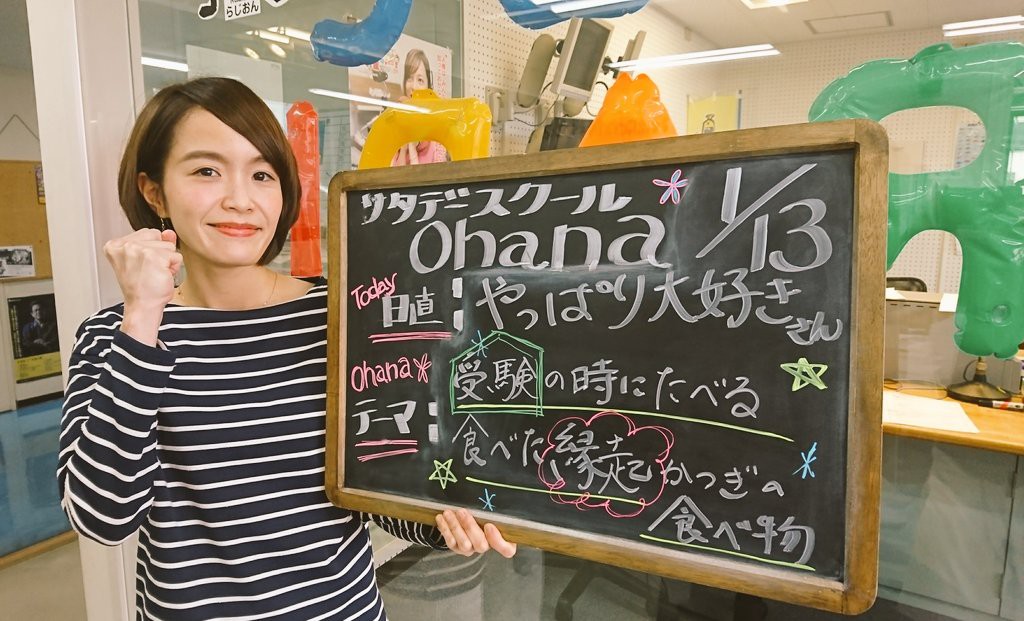 らじおん
サタデースクール
Ohana
1/13
Today
日直:やっぱり大好きさん
Ohana
テーマ:
受験の時にたべる
食べた縁起かつぎの
食べ物